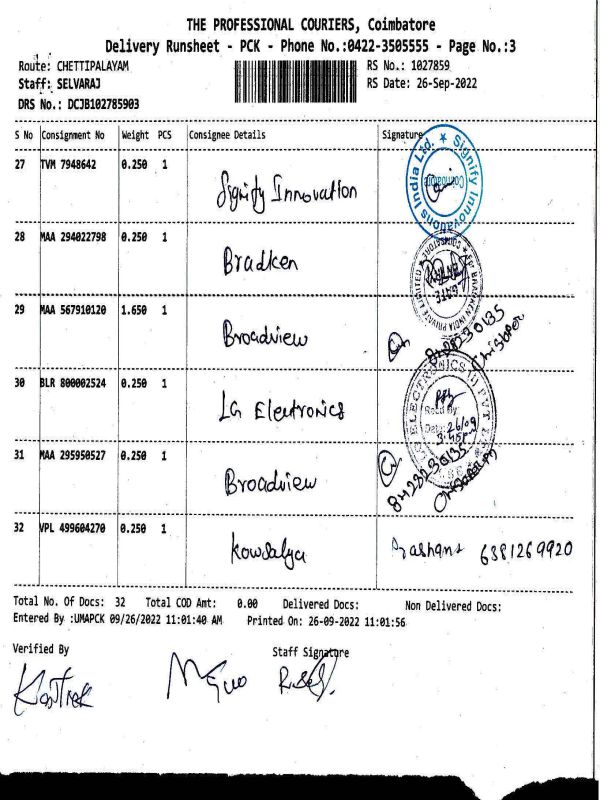 THE PROFESSIONAL COURIERS, Coimbatore
Delivery Runsheet - PCK - Phone No.:0422-3505555 - Page No.:3
Route: CHETTIPALAYAM RS No.: 1027859
Staff: SELVARAJ RS Date: 26-Sep-2022
DRS No.: DCJB102785903
S No Consignment No Weight PCS Consignee Details Signature
27 TVM 7948642 0.250 1 Signify Innovation
Signify Innovations India Ltd. ★ Coimbatore
28 MAA 294022798 0.250 1 Bradken
For BRADKEN INDIA PRIVATE LIMITED ★ COIMBATORE ★
GATE ENTRY
29 MAA 567910120 1.650 1 Broadview
8428230135
Christoper
30 BLR 800002524 0.250 1 LG Electronics
ELECTRONICS (I) PVT
Recd By:
Date: 26/09
3:45pm
31 MAA 295950527 0.250 1 Broadview
8428230135
32 VPL 499604270 0.250 1 Kowsalya Prashant 6381269920
Total No. Of Docs: 32 Total COD Amt: 0.00 Delivered Docs: Non Delivered Docs:
Entered By :UMAPCK 09/26/2022 11:01:40 AM Printed On: 26-09-2022 11:01:56
Verified By Staff Signature